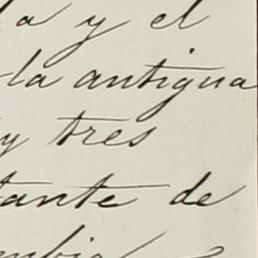 la y el
la antigua
y tres
tante de
mbia